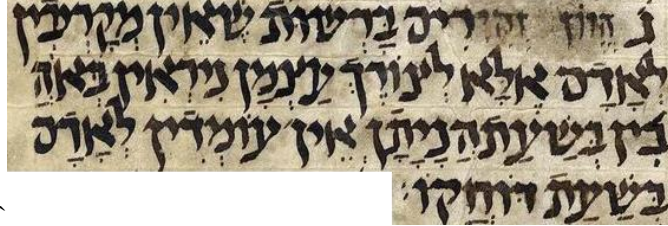 ג הוון זהירים ברשות שאין מקרבין
לאדם אלא לצורך עצמן ניראין כאוה
בין בשעת הניתן אין עומדין לאדם
בשעת דוחקו: